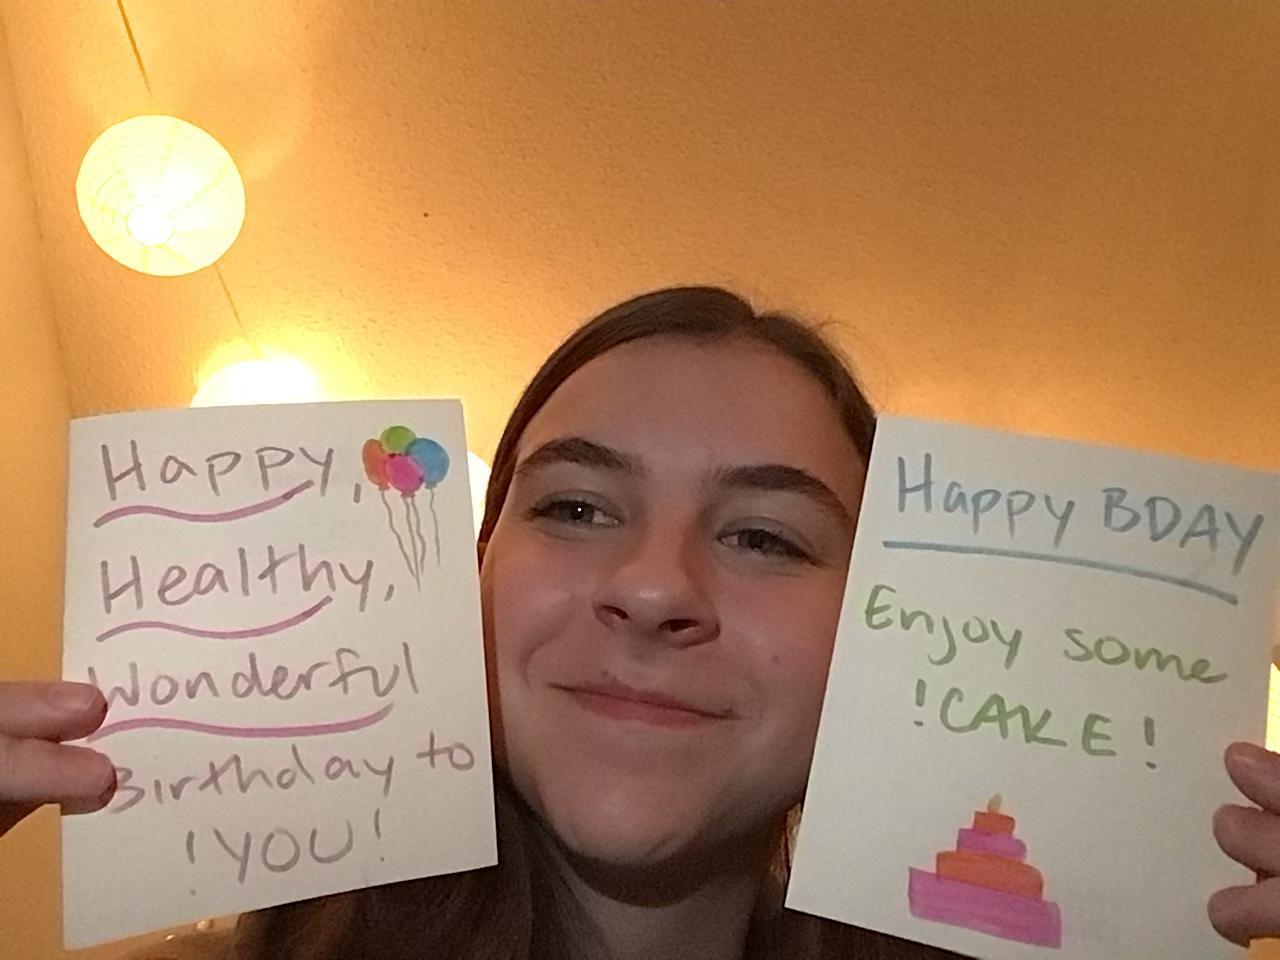 Happy,
Healthy,
Wonderful
Birthday to
!YOU!
Happy BDAY
Enjoy some
!CAKE!